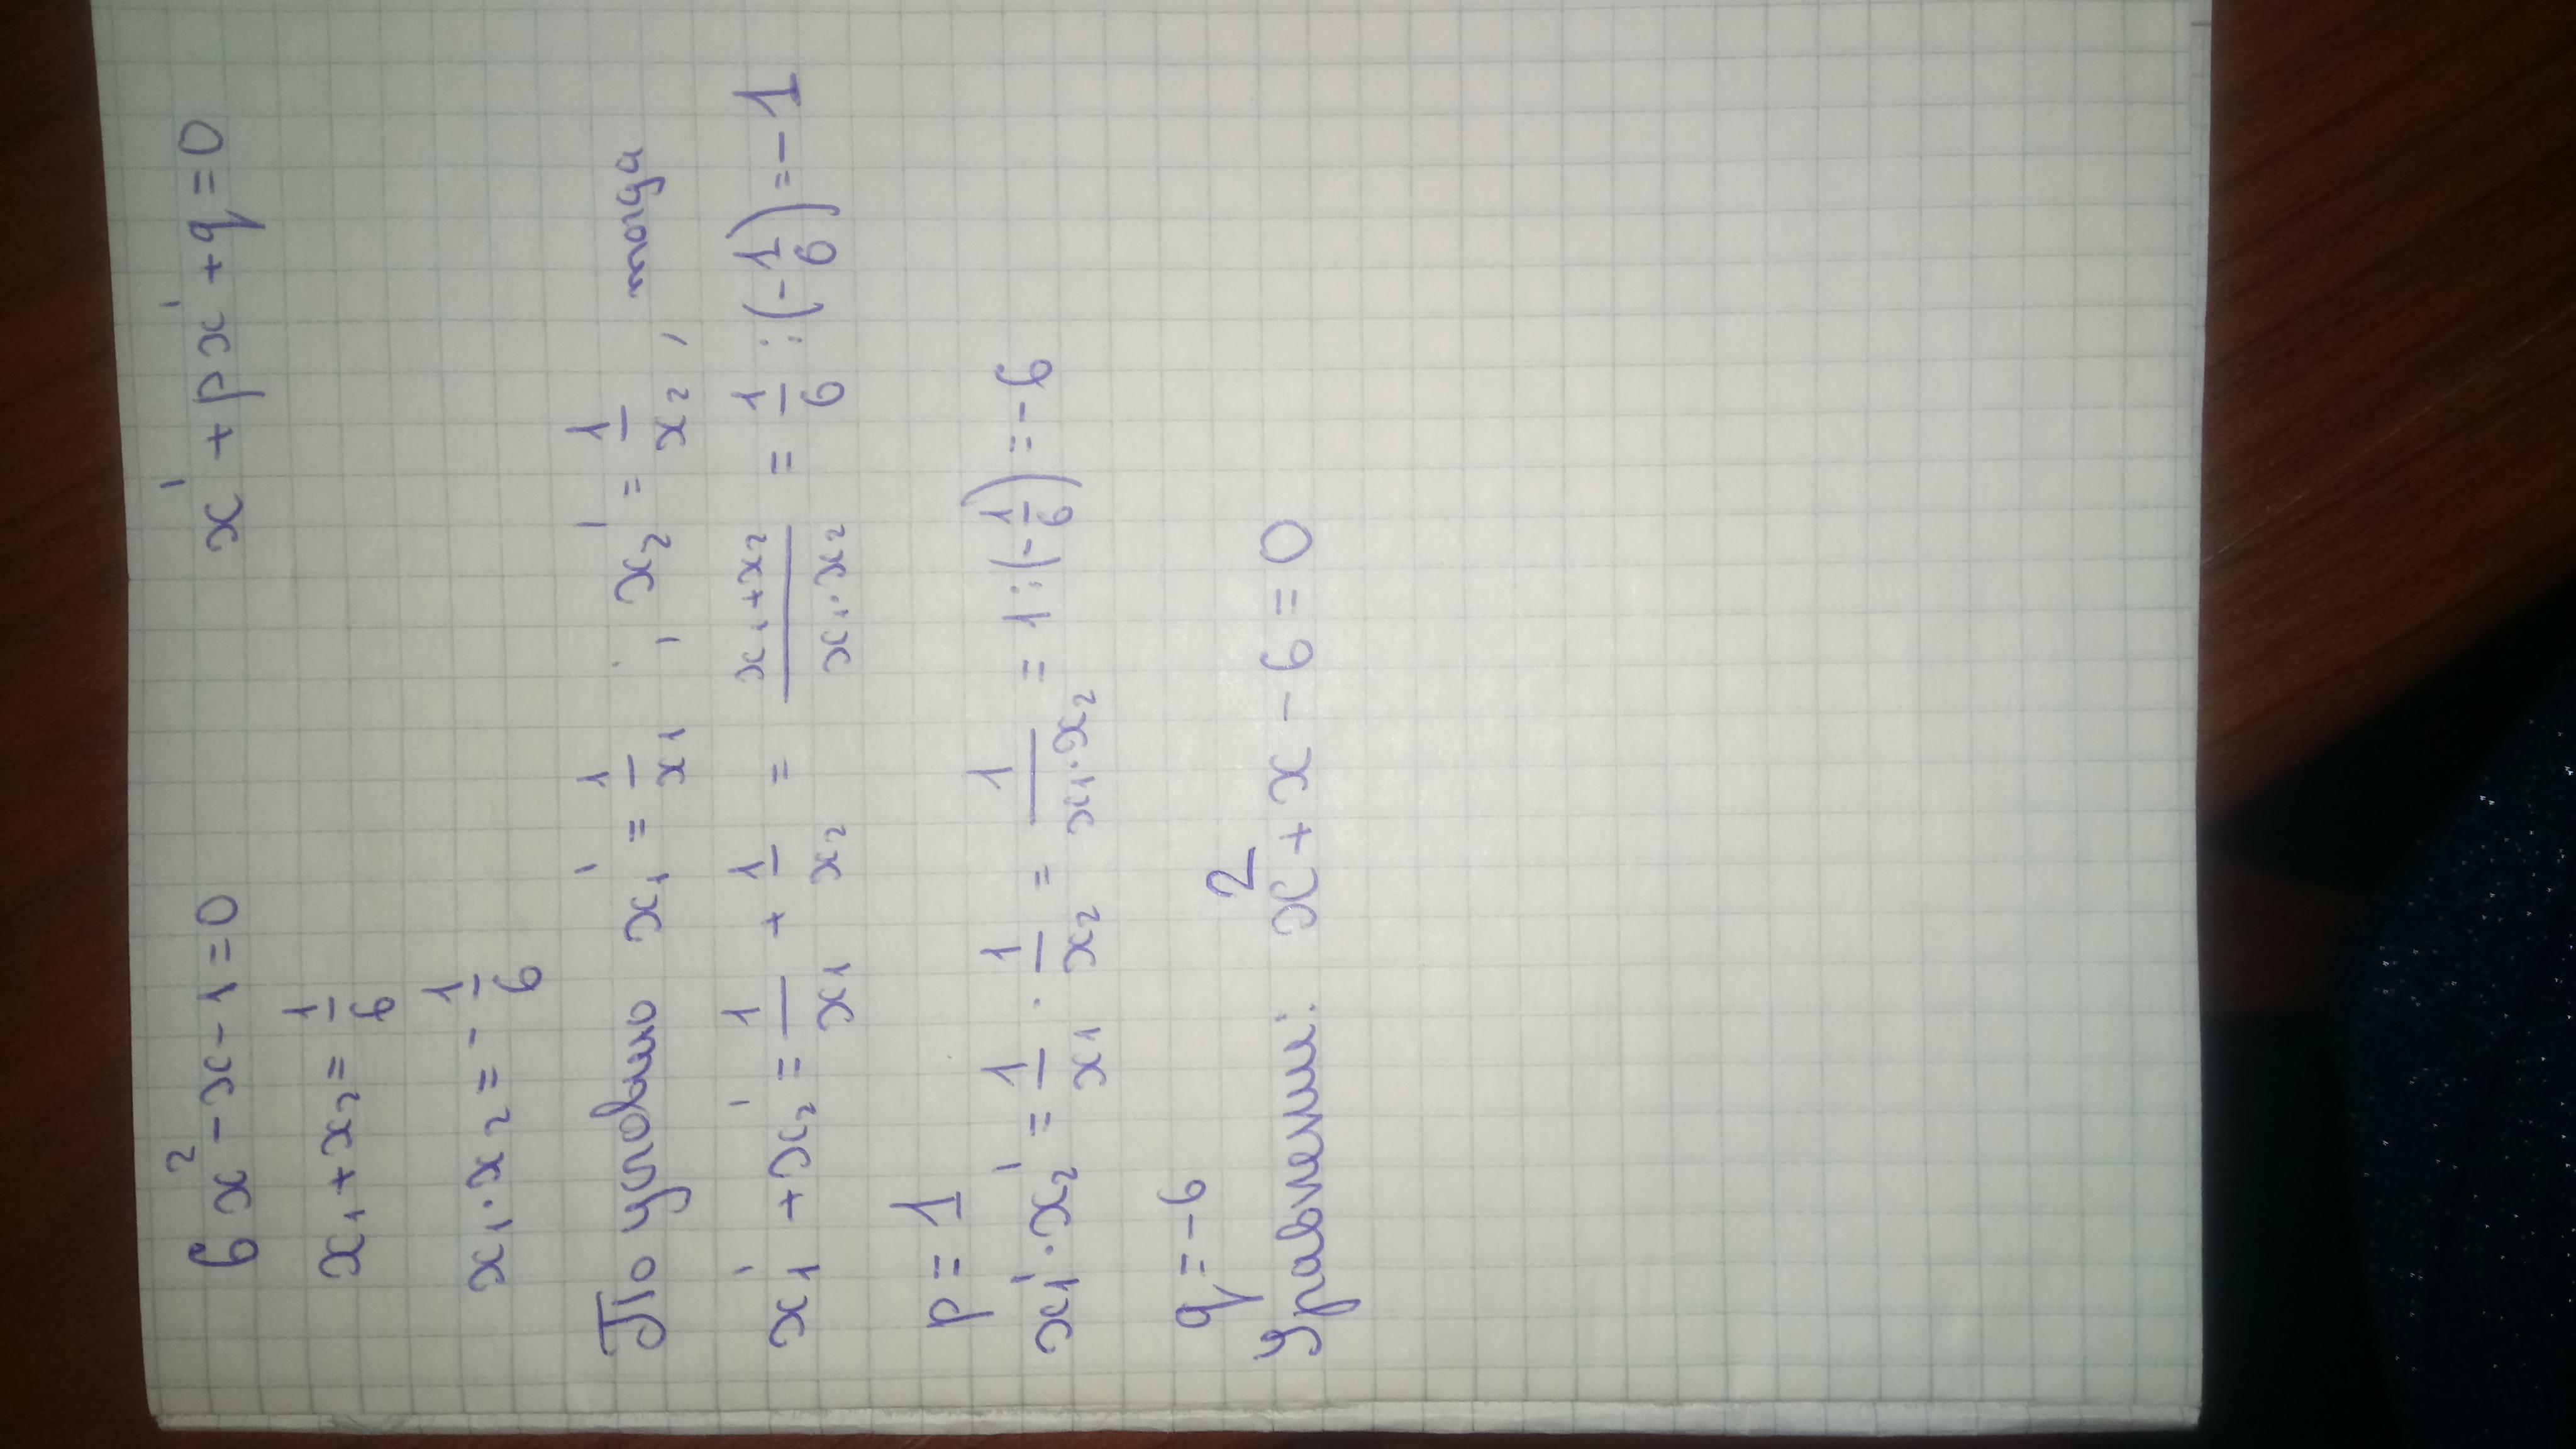 6x² - x - 1 = 0 x' + px' + q = 0
x₁ + x₂ = 1/6
x₁ · x₂ = - 1/6
По условию x₁' = 1/x₁ , x₂' = 1/x₂ , тогда
x₁' + x₂' = 1/x₁ + 1/x₂ = (x₁+x₂)/(x₁·x₂) = 1/6 : (-1/6) = -1
p = 1
x₁' · x₂' = 1/x₁ · 1/x₂ = 1/(x₁·x₂) = 1 : (-1/6) = -6
q = -6
Уравнение: x² + x - 6 = 0